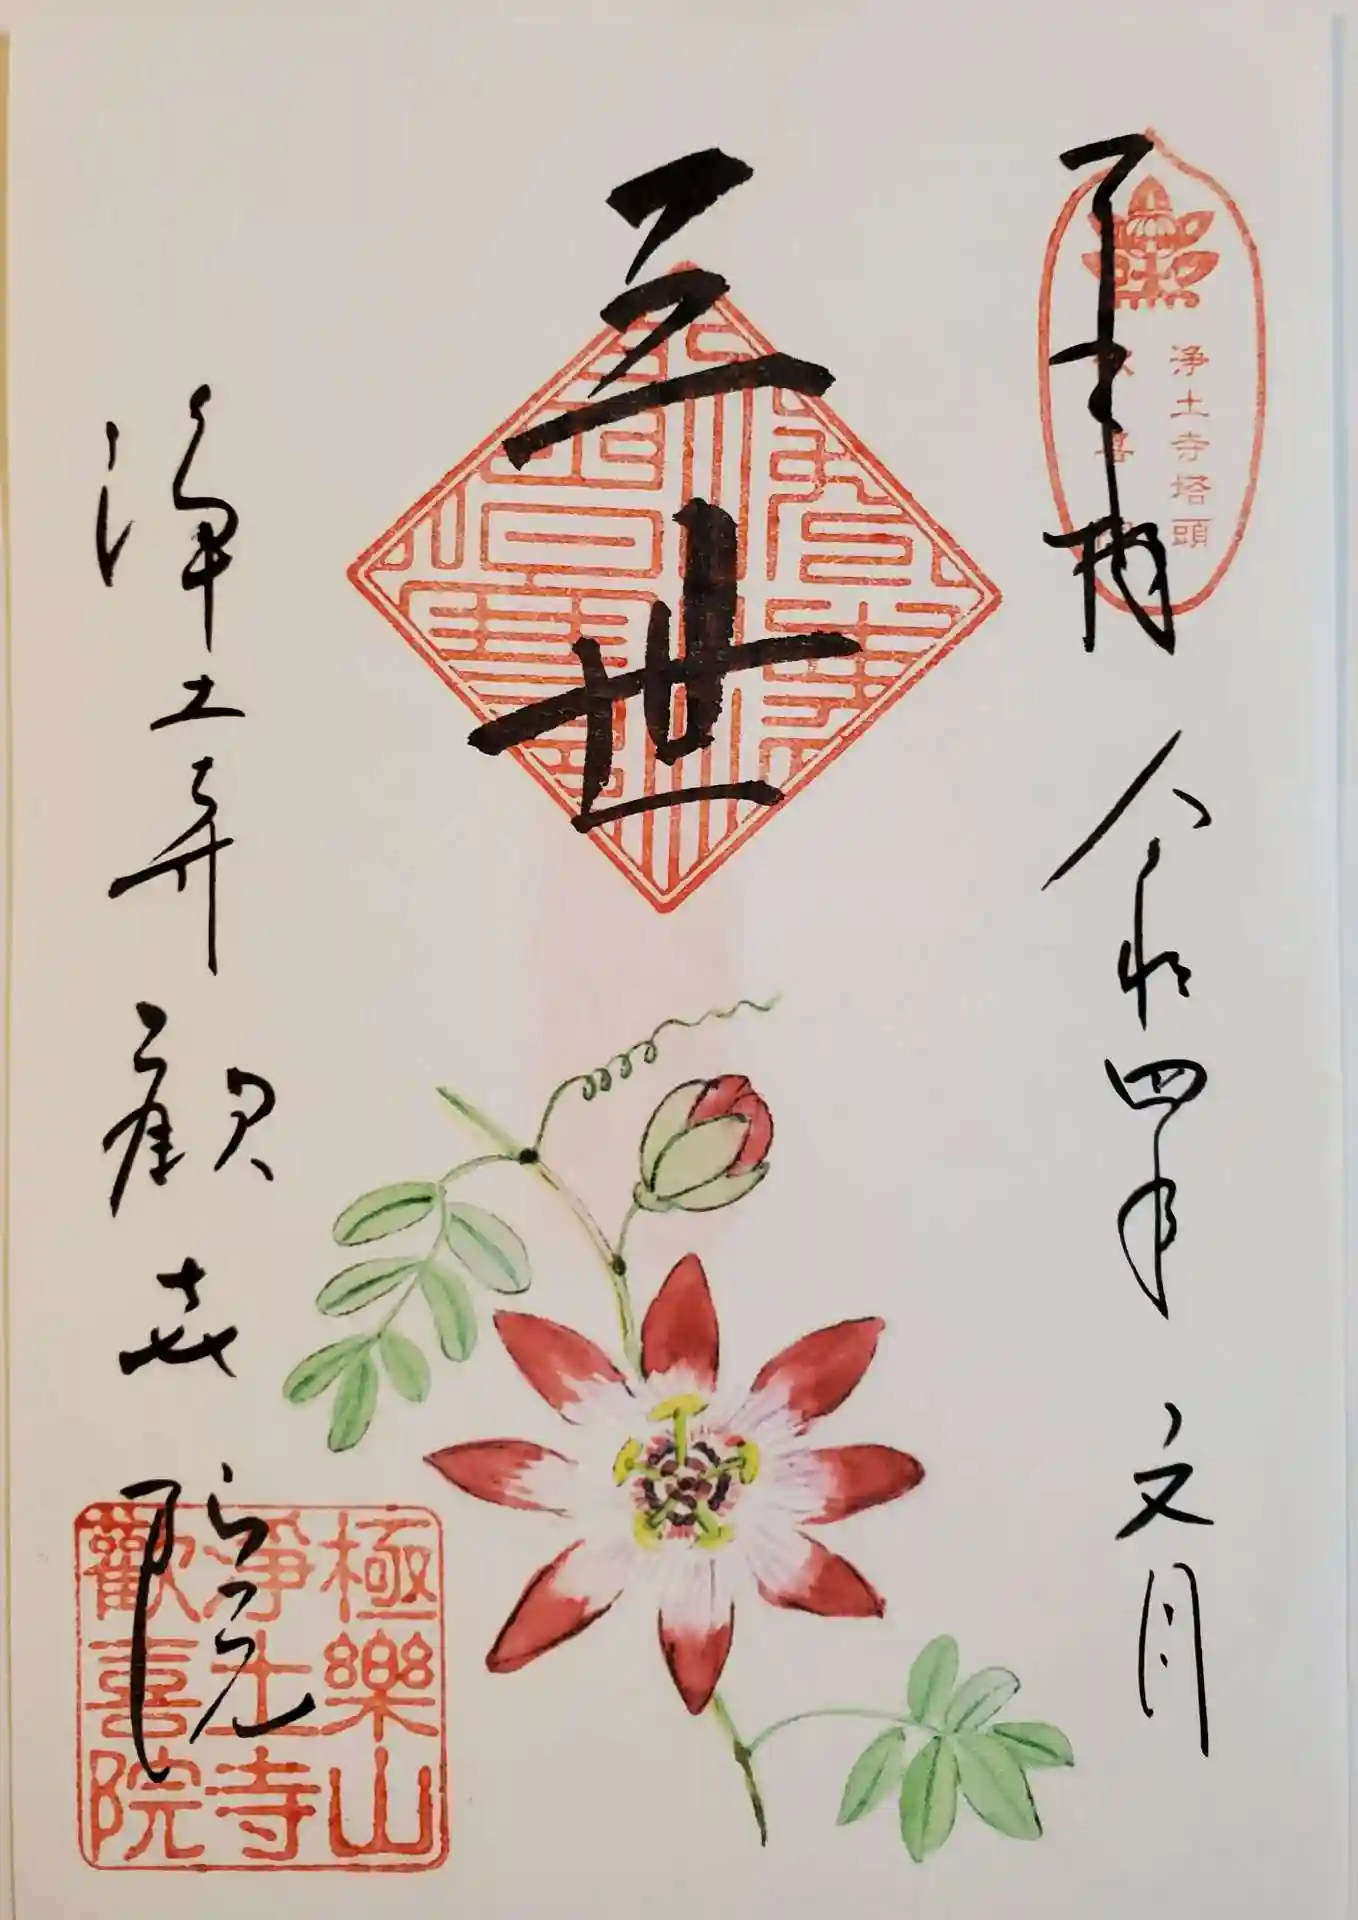 奉拝 令和四年 文月
浄土寺塔頭
歓喜院
三世
浄土寺 歓喜院
極樂山
淨土寺
歡喜院